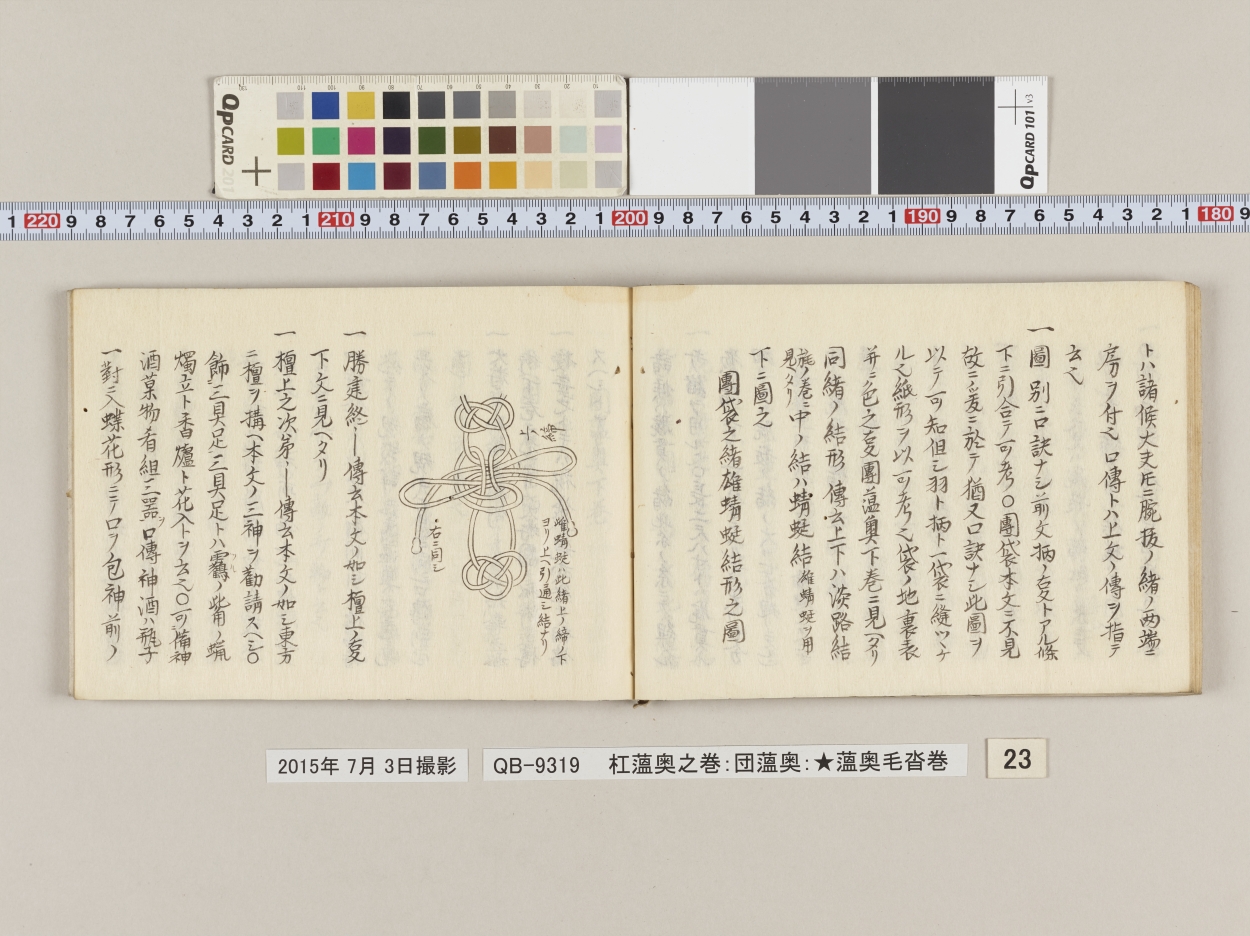 QpCARD 201
QpCARD 101 v3
1 220 9 8 7 6 5 4 3 2 1 210 9 8 7 6 5 4 3 2 1 200 9 8 7 6 5 4 3 2 1 190 9 8 7 6 5 4 3 2 1 180 9
トハ諸侯大夫圧ニ腕抜ノ緒ノ両端ニ
房ヲ付ベロ傳トハ上文ノ傳ヲ指テ
云ヘ
一圖 別ニ口訣ナシ前文柄ノ叓トアル條
下ニ引合テ可考○團袋本文ニ不見
故ニ爰ニ於テ猶又口訣ナシ此圖ヲ
以テ可知但シ羽ト柄ト一袋ニ縫ツヽケ
ルヘ紙形ヲ以可考之袋ノ地裏表
并ニ色之叓團薀奥下巻ニ見ヘタリ
同緒ノ結形傳云上下ハ淡路結
中ノ結ハ蜻蜓結雄蜻蜓ヲ用
旄ノ巻ニ見ヘタリ
下ニ圖之
團袋之緒雄蜻蜓結形之圖
蜻蜓ハ此緒上ノ締ノ下
ヨリ上ヘ引通シ結ナリ
右ニ同シ
一勝建終ノ― 傳云本文ノ如シ檀上ノ叓
下文ニ見ヘタリ
一檀上之次第ノ― 傳云本文ノ如シ東方
ニ檀ヲ搆ヘ本文ノ三神ヲ勸請スヘシ○
飾三具足三具足トハ靏ノ觜ノ蝋
燭立ト香爐ト花入トヲ云ヘ○可備神
酒菓物肴組三器ヲ口傳神酒ハ瓶子
一對ニ入蝶花形ニテ口ヲ包神前ノ
2015年 7月 3日撮影
QB-9319 杠薀奥之巻:団薀奥:★薀奥毛沓巻
23